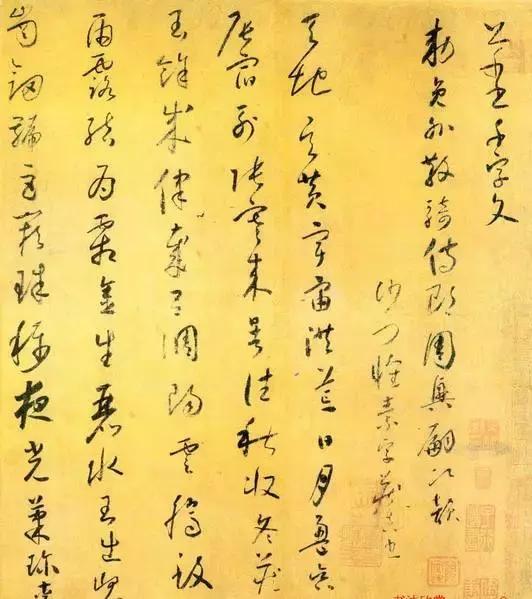 千字文
勅員外散騎侍郎周興嗣次韻
沙門懷素字藏真也
天地玄黃宇宙洪荒日月盈昃
辰宿列張寒來暑往秋收冬藏
閏餘成律歲呂調陽雲騰致
雨露結為霜金生麗水玉出崐
崗劍號巨闕珠稱夜光菓珍李